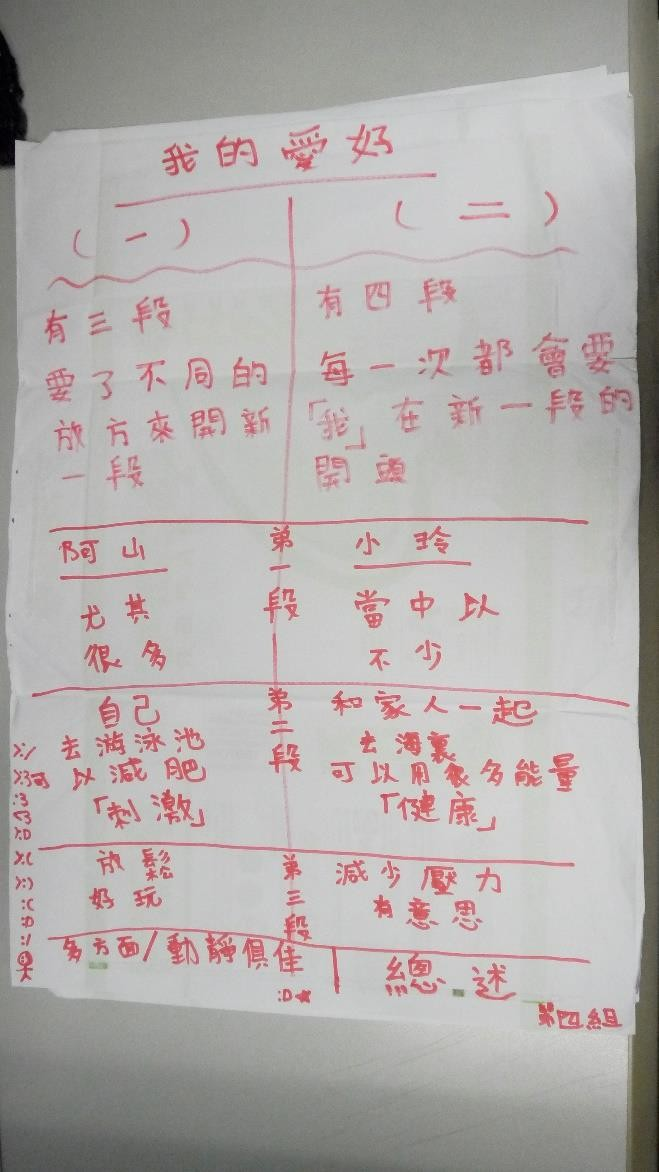 我的愛好
(一)
(二)
有三段
要了不同的
放方來開新
一段
有四段
每一次都會要
「我」在新一段的
開頭
阿山
第一段
小玲
尤其
很多
當中以
不少
自己
去游泳池
可以減肥
「刺激」
第二段
和家人一起
去海裏
可以用很多能量
「健康」
放鬆
好玩
第三段
減少壓力
有意思
多方面/動靜俱佳
總述
:D★
第四組